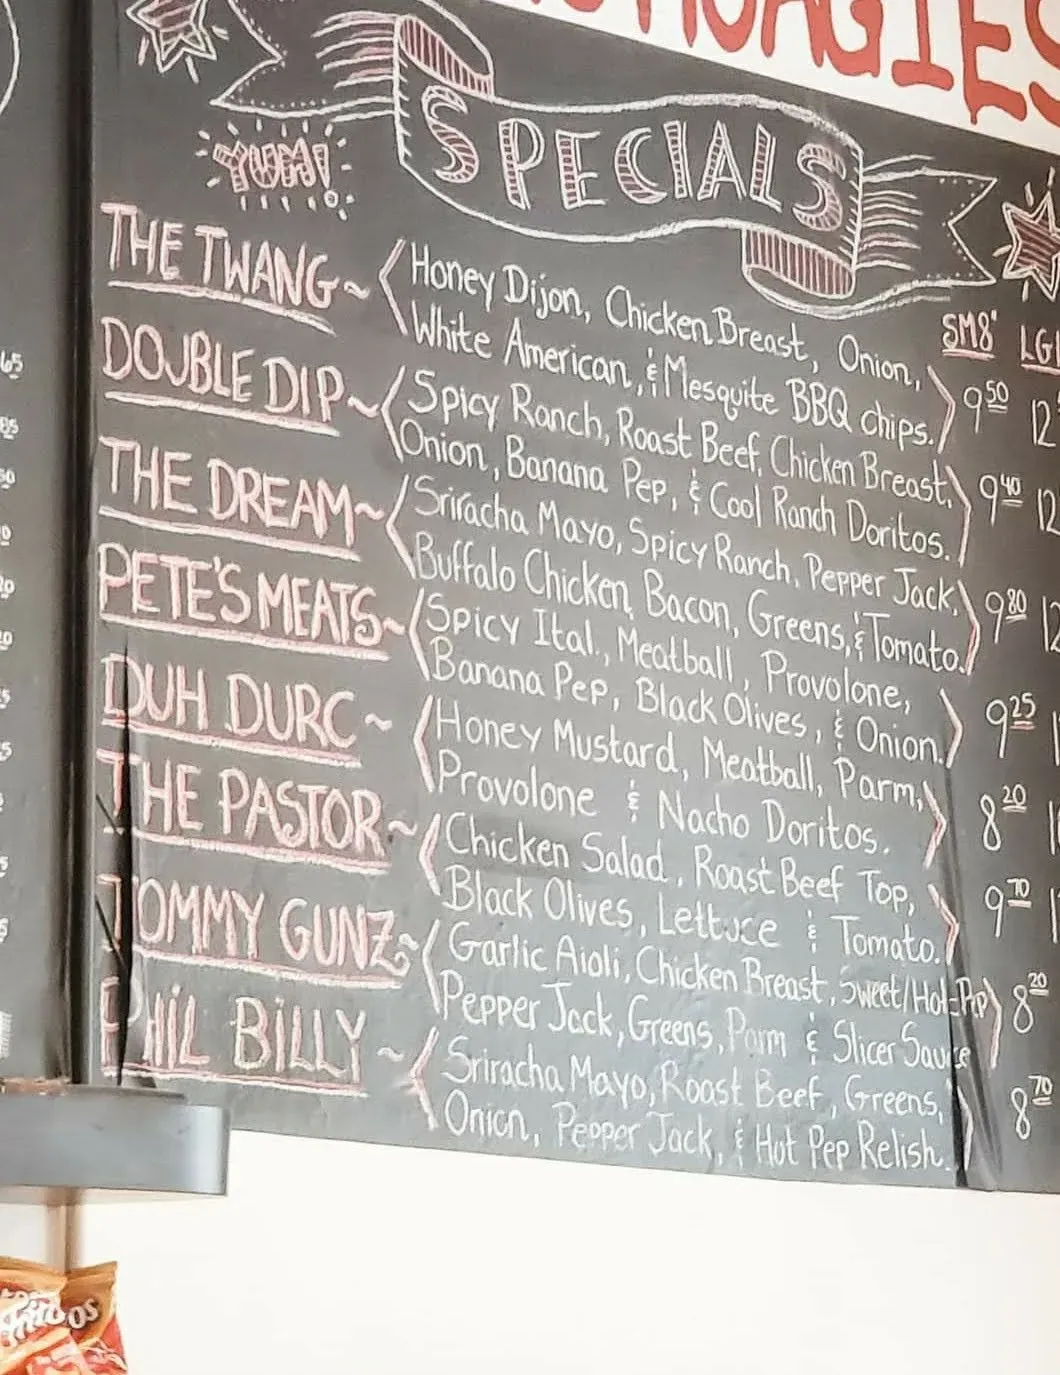 HOAGIES
SPECIALS
YUM!
SM8"
THE TWANG ~ Honey Dijon, Chicken Breast, Onion, 9.50 12
White American, & Mesquite BBQ chips.
DOUBLE DIP ~ Spicy Ranch, Roast Beef, Chicken Breast, 9.40 12
Onion, Banana Pep, & Cool Ranch Doritos.
THE DREAM ~ Sriracha Mayo, Spicy Ranch, Pepper Jack, 9.80 12
Buffalo Chicken, Bacon, Greens, & Tomato.
PETE'S MEATS ~ Spicy Ital., Meatball, Provolone, 9.25
Banana Pep, Black Olives, & Onion.
DUH DURC ~ Honey Mustard, Meatball, Parm, 8.20
Provolone & Nacho Doritos.
THE PASTOR ~ Chicken Salad, Roast Beef Top, 9.70
Black Olives, Lettuce & Tomato.
TOMMY GUNZ ~ Garlic Aioli, Chicken Breast, Sweet/Hot-Pep 8.20
Pepper Jack, Greens, Parm & Slicer Sauce
PHIL BILLY ~ Sriracha Mayo, Roast Beef, Greens, 8.70
Onion, Pepper Jack, & Hot Pep Relish.
Fritos